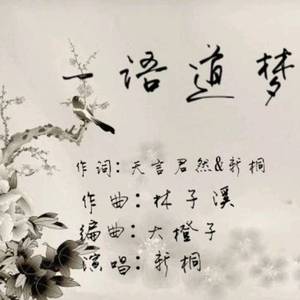 一语道梦
作词：天言君然&新桐
作曲：林子溪
编曲：大橙子
演唱：新桐